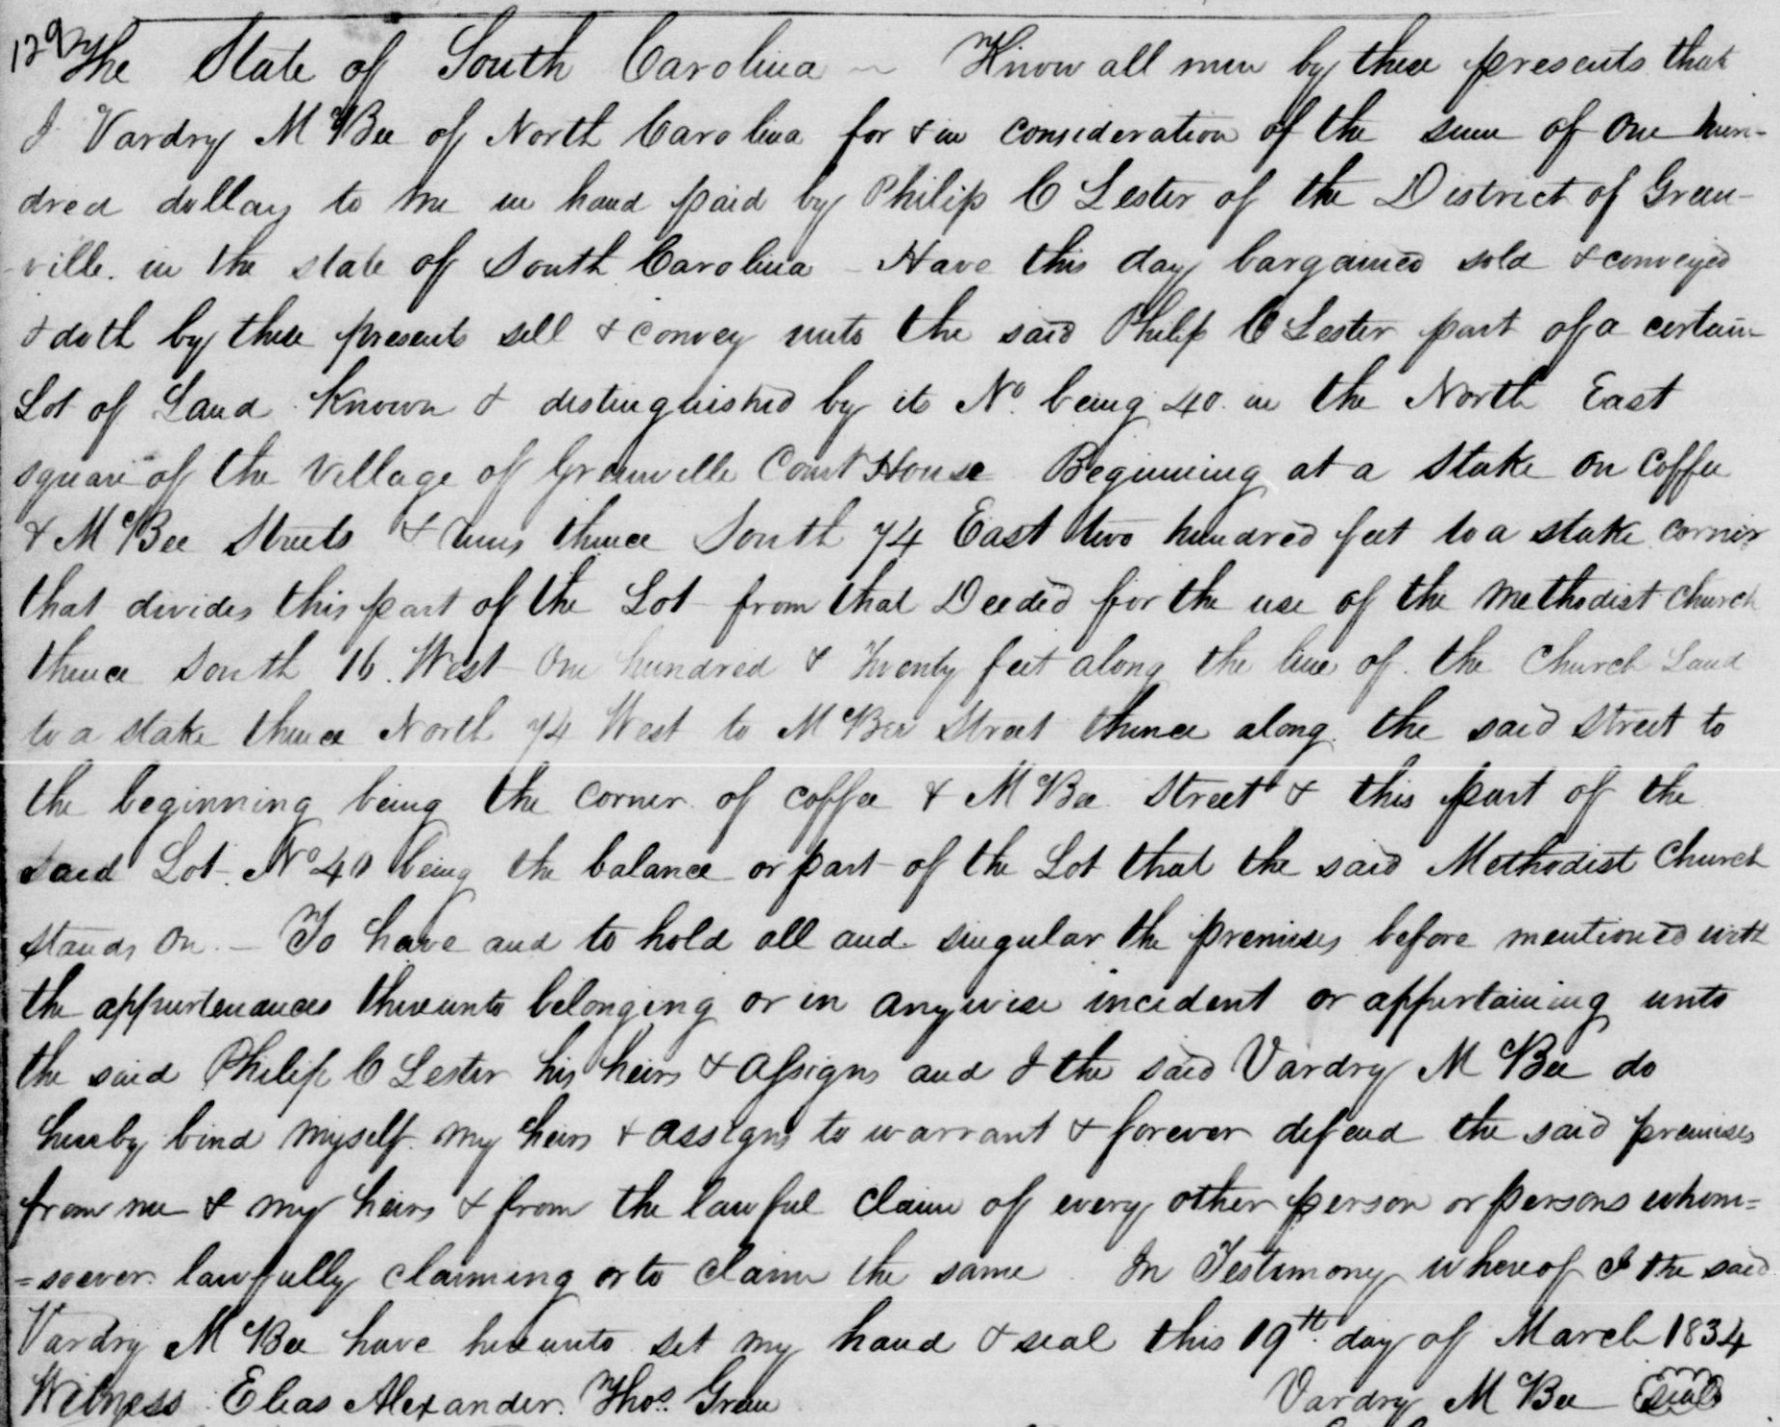 129 The State of South Carolina ~ Know all men by these presents that
I Vardry McBee of North Carolina for & in consideration of the sum of One hun-
dred dollars to me in hand paid by Philip C Lester of the District of Green-
-ville. in the state of South Carolina - Have this day bargained sold & conveyed
& doth by these presents sell & convey unto the said Philip C Lester part of a certain
Lot of Land Known & distinguished by its No. being 40. in the North East
square of the Village of Greenville Court House Beginning at a Stake on Coffee
& McBee Streets & runs thence South 74 East two hundred feet to a stake corner
that divides this part of the Lot from that Deeded for the use of the Methodist Church
thence South 16. West One hundred & Twenty feet along the line of the Church Land
to a stake thence North 74 West to McBee Street thence along the said Street to
the beginning being the corner of coffee & McBee Street & this part of the
said Lot No 40 being the balance or part of the Lot that the said Methodist Church
stands on. - To have and to hold all and singular the premises before mentioned with
the appurtenances thereunto belonging or in anywise incident or appertaining unto
the said Philip C Lester his heirs & Assigns and I the said Vardry McBee do
hereby bind myself my heirs & assigns to warrant & forever defend the said premises
from me & my heirs & from the lawful claim of every other person or persons whom=
=soever lawfully claiming or to claim the same. In Testimony whereof I the said
Vardry McBee have hereunto set my hand & seal this 19th day of March 1834
Witness Elias Alexander. Thos. Green Vardry McBee seal